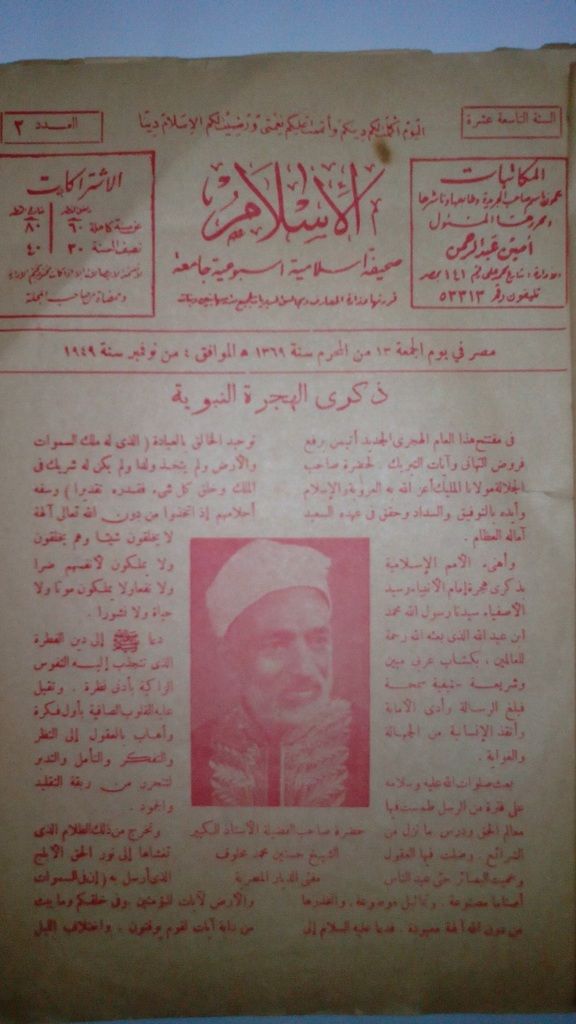 السنة التاسعة عشرة
اليوم أكملت لكم دينكم وأتممت عليكم نعمتي ورضيت لكم الإسلام دينا
العدد ٢
المكاتبات
أمين عبد الرحمن
تليفون رقم ٥٣٣١٣
الإسلام
صحيفة إسلامية أسبوعية جامعة
الاشتراكات
٦٠ ٨٠
نصف السنة ٣٠ ٤٠
مصر في يوم الجمعة ١٣ من المحرم سنة ١٣٦٩ ه الموافق ٤ من نوفمبر سنة ١٩٤٩
ذكرى الهجرة النبوية
في مفتتح هذا العام الهجري الجديد أتيمن برفع
فروض التهاني وآيات التبريك. لحضرة صاحب
الجلالة مولانا الملك أعز الله به العروبة والإسلام
وأيده بالتوفيق والسداد وحقق في عهده السعيد
آماله العظام.
وأهنيء الأمم الإسلامية
بذكرى هجرة إمام الأنبياء وسيد
الأصفياء سيدنا رسول الله محمد
ابن عبد الله الذي بعثه الله رحمة
للعالمين، بكتاب عربي مبين
وشريعة حنيفية سمحة
فبلغ الرسالة وأدى الأمانة
وأنقذ الإنسانية من الجهالة
والغواية.
بعث صلوات الله عليه وسلامه
على فترة من الرسل طمست فيها
معالم الحق ودرس ما نزل من
الشرائع. وضلت فيها العقول
وعميت البصائر حتى عبد الناس
أصناما مصنوعة. وتماثيل موضوعة. واتخذوها
من دون الله آلهة معبودة. فدعا عليه السلام إلى
توحيد الخالق بالعبادة (الذي له ملك السموات
والأرض ولم يتخذ ولدا ولم يكن له شريك في
الملك وخلق كل شيء فقدره تقديرا) وسفه
أحلامهم إذ اتخذوا من دون الله تعالى آلهة
لا يخلقون شيئا وهم يخلقون
ولا يملكون لأنفسهم ضرا
ولا نفعا ولا يملكون موتا ولا
حياة ولا نشورا.
دعا ﷺ إلى دين الفطرة
الذي تنجذب إليه النفوس
الزاكية بأدنى نظرة. وتقبل
عليه القلوب الصافية بأول فكرة
وأهاب بالعقول إلى النظر
والتفكر والتأمل والتدبر
لتتحرر من ربقة التقليد
والجمود.
وتخرج من ذلك الظلام الذي
تغشاها إلى نور الحق الأبلج
الذي أرسل به (إن في السموات
والأرض لآيات للمؤمنين. وفي خلقكم وما يبث
من دابة آيات لقوم يوقنون. واختلاف الليل
حضرة صاحب الفضيلة الأستاذ الكبير
الشيخ حسنين محمد مخلوف
مفتي الديار المصرية